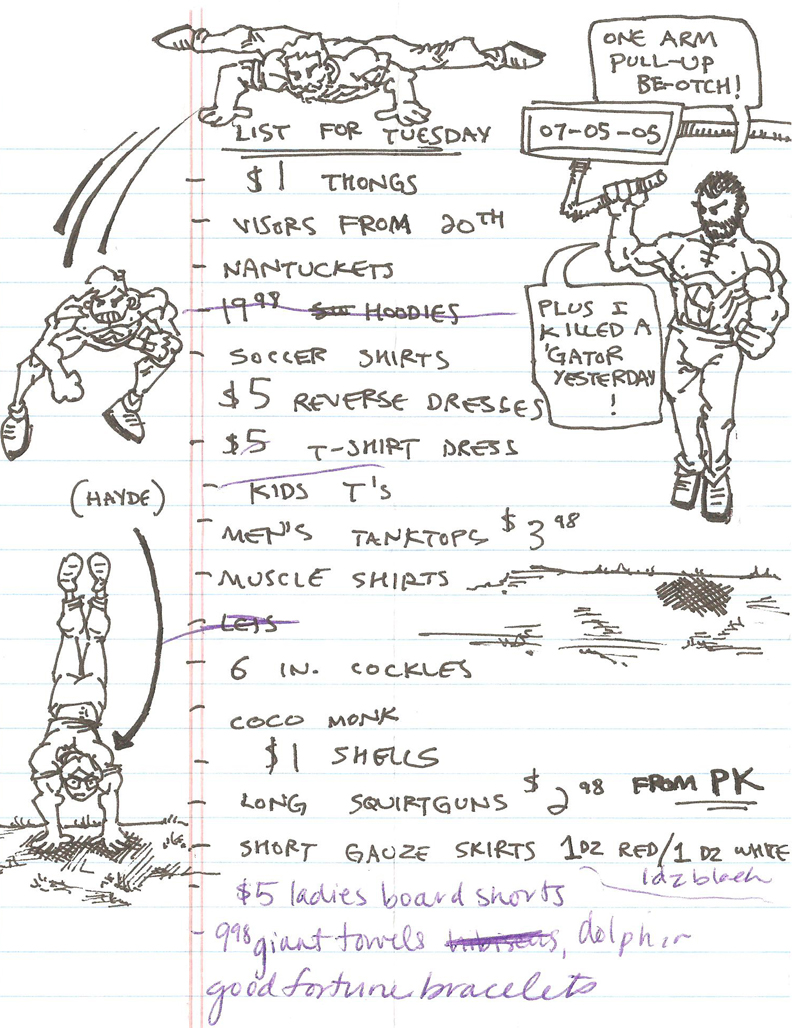 ONE ARM
PULL-UP
BE-OTCH!
07-05-05
PLUS I
KILLED A
'GATOR
YESTERDAY
!
LIST FOR TUESDAY
- $1 THONGS
- VISORS FROM 20TH
- NANTUCKETS
- 19.98 HOODIES
- SOCCER SHIRTS
- $5 REVERSE DRESSES
- $5 T-SHIRT DRESS
- KIDS T'S
(HAYDE)
- MEN'S TANKTOPS $3.98
- MUSCLE SHIRTS
- LEIS
- 6 IN. COCKLES
- COCO MONK
- $1 SHELLS
- LONG SQUIRTGUNS $2.98 FROM PK
- SHORT GAUZE SKIRTS 1DZ RED/1 DZ WHITE
1dz black
- $5 ladies board shorts
- 9.98 giant towels hibiscus, dolphin
good fortune bracelets